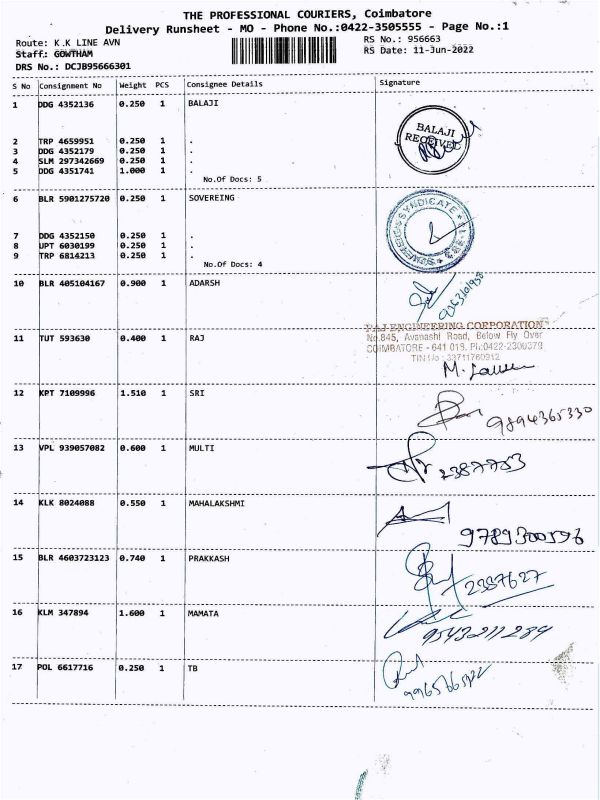 THE PROFESSIONAL COURIERS, Coimbatore
Delivery Runsheet - MO - Phone No.:0422-3505555 - Page No.:1
Route: K.K LINE AVN
RS No.: 956663
Staff: GOWTHAM
RS Date: 11-Jun-2022
DRS No.: DCJB95666301
S No Consignment No Weight PCS Consignee Details Signature
1 DDG 4352136 0.250 1 BALAJI
BALAJI
RECEIVED
2 TRP 4659951 0.250 1 .
3 DDG 4352179 0.250 1 .
4 SLM 297342669 0.250 1 .
5 DDG 4351741 1.000 1 .
No.Of Docs: 5
6 BLR 5901275720 0.250 1 SOVEREING
SYNDICATE
7 DDG 4352150 0.250 1 .
8 UPT 6030199 0.250 1 .
9 TRP 6814213 0.250 1 .
No.Of Docs: 4
10 BLR 405104167 0.900 1 ADARSH
RAJ ENGINEERING CORPORATION
11 TUT 593630 0.400 1 RAJ
No.845, Avanashi Road, Below Fly Over
COIMBATORE - 641 018. Ph:0422-2300379
TIN No : 33711760912
12 KPT 7109996 1.510 1 SRI
9894365330
13 VPL 939057082 0.600 1 MULTI
2387753
14 KLK 8024088 0.550 1 MAHALAKSHMI
9789300596
15 BLR 4603723123 0.740 1 PRAKKASH
2387627
16 KLM 347894 1.600 1 MAMATA
9543211284
17 POL 6617716 0.250 1 TB